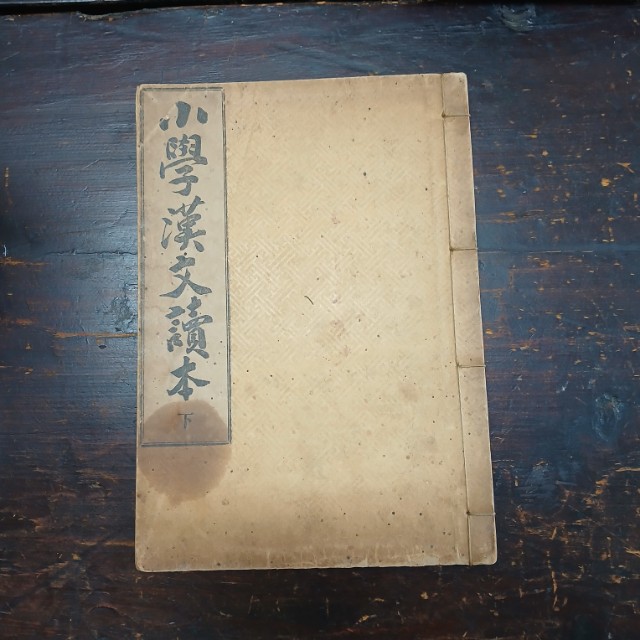 小學漢文讀本下